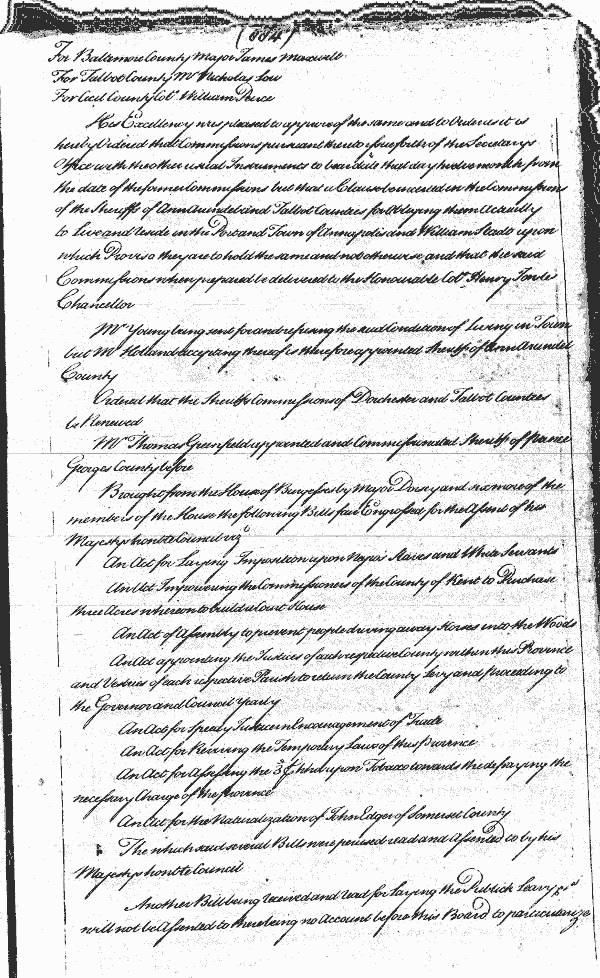 (884)
For Baltimore County Major James Maxwell
For Talbot County Mr Nicholas Low
For Cecil County Col William Pearce
His Excellency was pleased to approve of the same and to Order as it is
hereby Ordered that Commissions pursuant thereto issue forth of the Secretarys
Office with the other usual Instruments to bear date that day twelve month from
the date of the former Commissions but that a Clause be inserted in the Commissions
of the Sheriffs of Ann Arundel and Talbot Counties for obligeing them actually
to Live and reside in the Port and Town of Annapolis and William Stadt upon
which Proviso they are to hold the same and not otherwise and that the said
Commissions when prepared be delivered to the Honourable Col Henry
Chancellor
Mr Young being sent for and refusing the said Condition of living in Town
but Mr Holland accepting thereof is therefore appointed Sheriff of Ann Arundel
County
Ordered that the Sheriffs Commissions of Dorchester and Talbot Counties
be Renewed
Mr Thomas Greenfield appointed and Commissionated Sheriff of Prince
Georges County before
Brought from the House of Burgesses by Major Dorsey and six more of the
members of the House the following Bills fair Engrossed for the Assent of his
Majestys honble Council viz
An Act for Laying Imposition upon Negro Slaves and White Servants
An Act Impowering the Commissioners of the County of Kent to Purchase
three Acres whereon to build a Court House
An Act of Assembly to prevent people driving away Horses into the Woods
An Act appointing the Justices of each respective County within this Province
and Vestries of each respective Parish to return the County Levy and proceeding to
the Governor and Council Yearly
An Act for Speedy Justice in Encouragement of Trade
An Act for Reviving the Temporary Laws of this Province
An Act for Assessing the 3d hhd upon Tobacco towards the defraying the
necessary Charge of the Province
An Act for the Naturalization of John Edger of Somerset County
The which said several Bills were perused read and Assented to by his
Majestys honble Council
Another Bill being received and read for Laying the Publick Leavy
will not be Assented to there being no Account before this Board to particularize